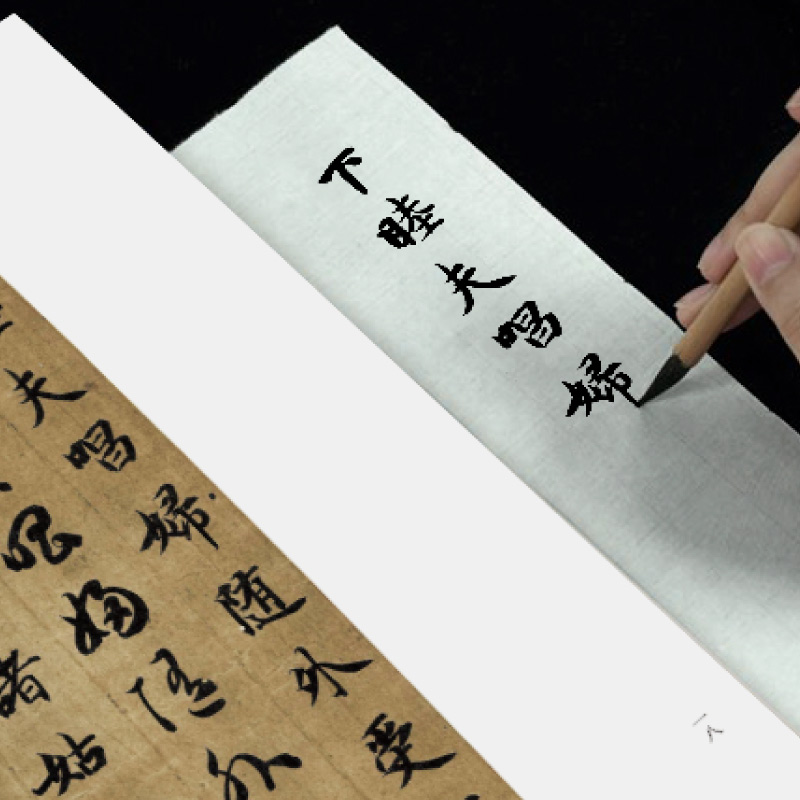 下睦夫唱婦
夫唱婦随外受
婦随外
諸姑
一八